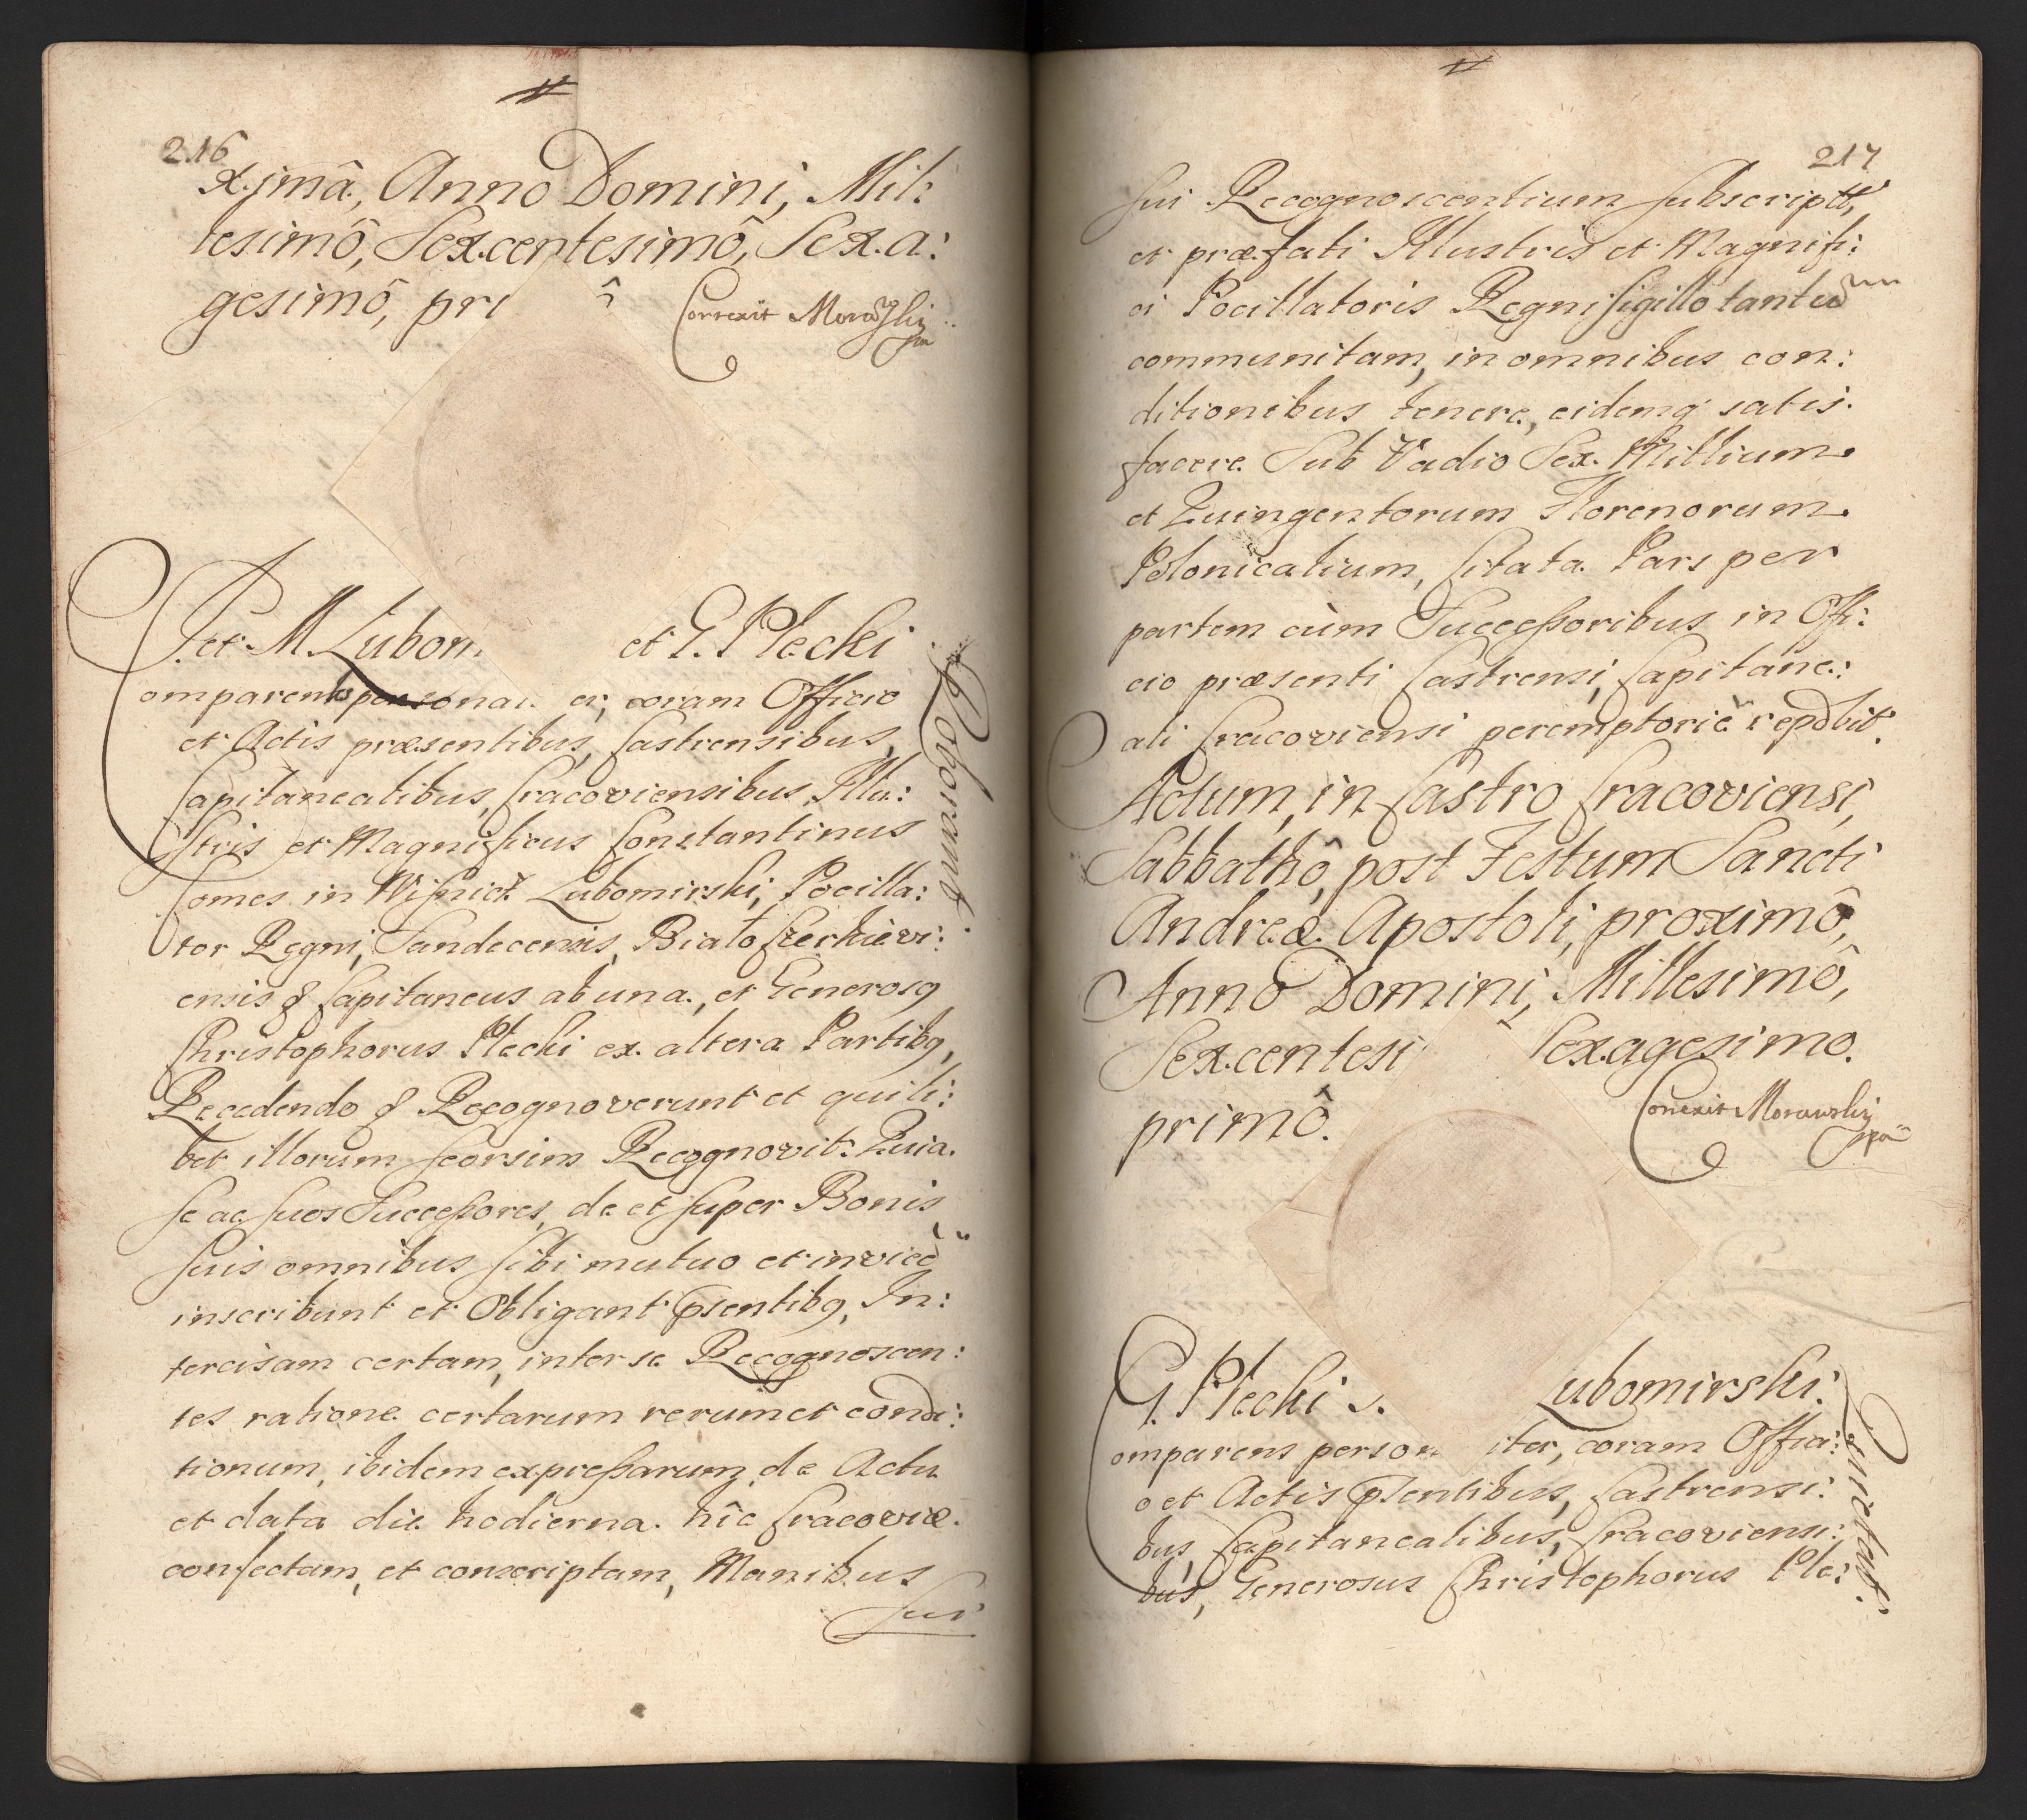 216
ximâ, Anno Domini, Mil:
lesimô, Sexcentesimô, Sexa:
gesimô, pri ô
Correxit Morawsky
I. et M. Lubom et G. Plecki
Roborant.
omparentes personal er, coram Officio
et Actis præsentibus, Castrensibus,
Capitanealibus, Cracoviensibus, Illu:
stris et Magnificus Constantinus
Comes in Wisnicz Lubomirski, Pocilla:
tor Regni, Sandecensis, Biało
ensis & Capitaneus ab una, et Generosq
Christophorus Plecki ex altera Partibq,
Recedendo & Recognoverunt et quili:
bet illorum seorsim Recognovit: Quia
se ac suos Successores, de et super Bonis
suis omnibus sibi mutuo et invicẽ
inscribunt et Obligant psentibq, In:
tercisam certam, inter se Recognoscen:
tes ratione certarum rerum et condi:
tionum, ibidem expressarum, de Actu
et data die hodierna hîc Cracoviæ
confectam, et conscriptam, Manibus
sui
217
sui Recognoscentium subscriptã,
et præfati Illustris et Magnifi:
ci Pocillatoris Regni sigillo tantũ
communitam, in omnibus con:
ditionibus tenere, eidemq satis:
facere Sub Vadio Sex Millium
et Quingentorum Florenorum
Polonicalium, Citata Pars per
partem cùm Successoribus in Offi:
cio præsenti Castrensi, Capitane:
ali Cracoviensi peremptoriè repõbit.
Actum, in Castro Cracoviensi,
Sabbathô, post Festum Sancti
Andreæ Apostoli, proximô,
Anno Domini, Millesimô,
Sexcentesi Sexagesimo.
primô.
Correxit Morawsky
G. Plecki Lubomirski.
Quietat.
omparens person iter, coram Offici:
o et Actis psentibus, Castrensi:
bus, Capitanealibus, Cracoviensi:
bus, Generosus Christophorus Ple: